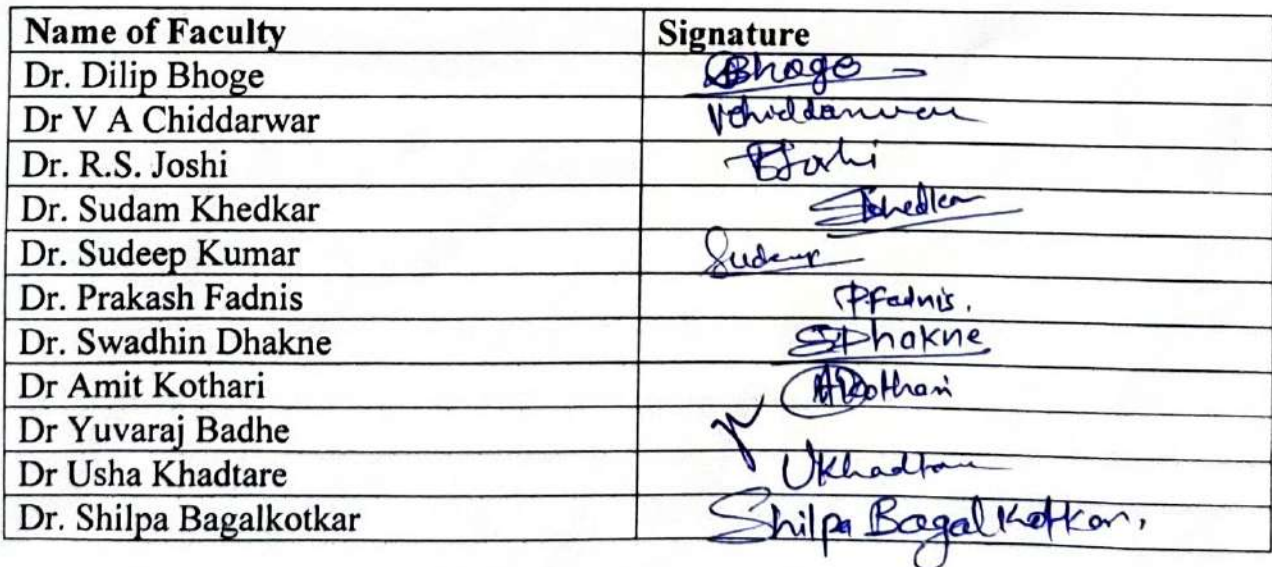 Name of Faculty Signature
Dr. Dilip Bhoge Bhoge
Dr V A Chiddarwar VChiddarwar
Dr. R.S. Joshi Joshi
Dr. Sudam Khedkar Khedkar
Dr. Sudeep Kumar Sudeep
Dr. Prakash Fadnis PFadnis.
Dr. Swadhin Dhakne SDhakne
Dr Amit Kothari AKothari
Dr Yuvaraj Badhe
Dr Usha Khadtare UKhadtare
Dr. Shilpa Bagalkotkar Shilpa Bagalkotkar.